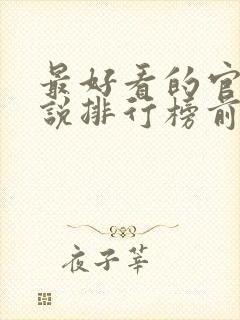 最好看的官
説排行榜前
夜子莘